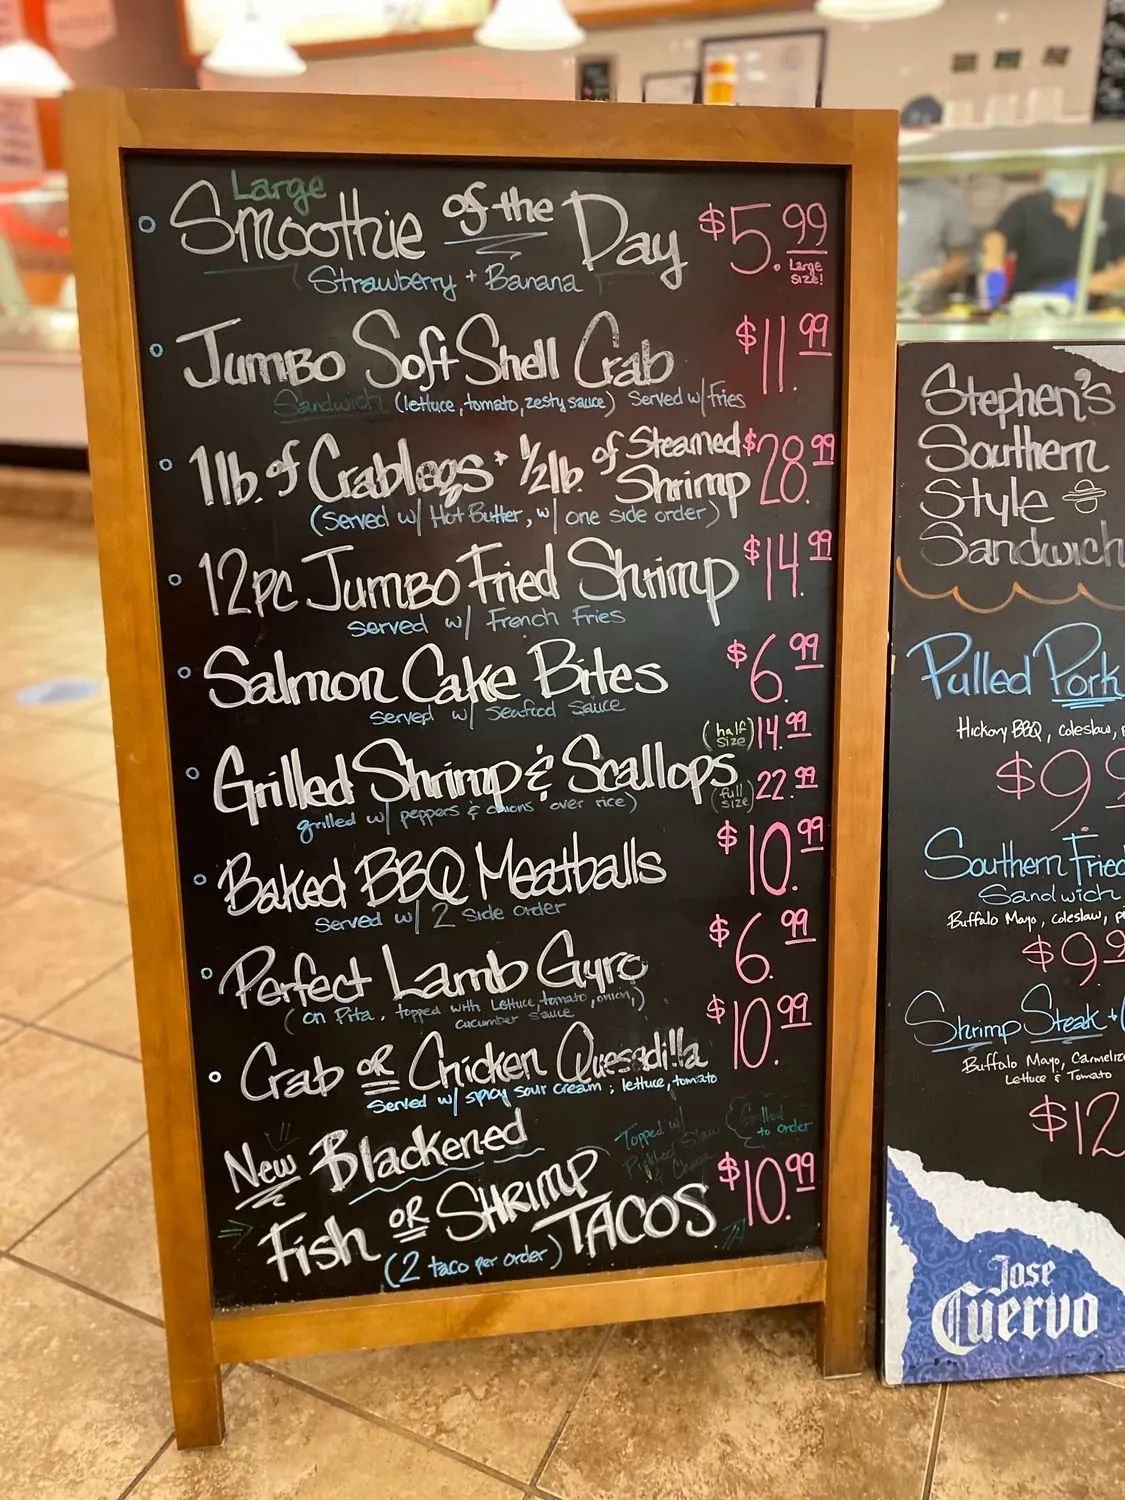 Large
Smoothie of the Day $5.99
Large size!
Strawberry + Banana
Jumbo Soft Shell Crab $11.99
Sandwich (lettuce, tomato, zesty sauce) Served w/ fries
1 lb. of Crablegs + 1/2 lb. of Steamed Shrimp $28.99
(Served w/ Hot Butter, w/ one side order)
12pc Jumbo Fried Shrimp $14.99
served w/ French Fries
Salmon Cake Bites $6.99
served w/ seafood sauce
(half size) 14.99
Grilled Shrimp & Scallops
(full size) 22.99
grilled w/ peppers & onions over rice)
Baked BBQ Meatballs $10.99
Served w/ 2 side order
Perfect Lamb Gyro $6.99
(on Pita. topped with Lettuce, tomato, onion,)
cucumber sauce
Crab or Chicken Quesadilla $10.99
Served w/ spicy sour cream; lettuce, tomato
New Blackened
Topped w/
Grilled to order
Fish or Shrimp TACOS $10.99
(2 taco per order)
Stephen's
Southern
Style
Sandwich
Pulled Pork
Hickory BBQ, coleslaw,
$9.9
Southern Fried
Sandwich
Buffalo Mayo, coleslaw,
$9.9
Shrimp Steak +
Buffalo Mayo,
Lettuce & Tomato
$12
Jose
Cuervo